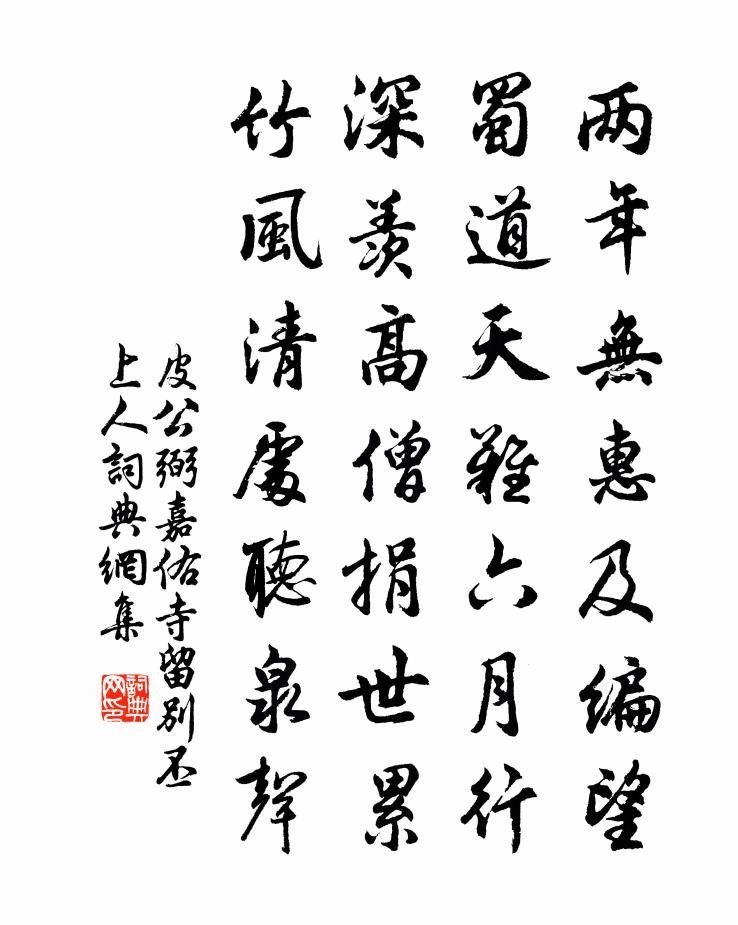 两年無惠及编望
蜀道天難六月行
深羨高僧捐世累
竹風清處聽泉聲
皮公弼嘉佑寺留别丕
上人詞典網集
詞典
网印